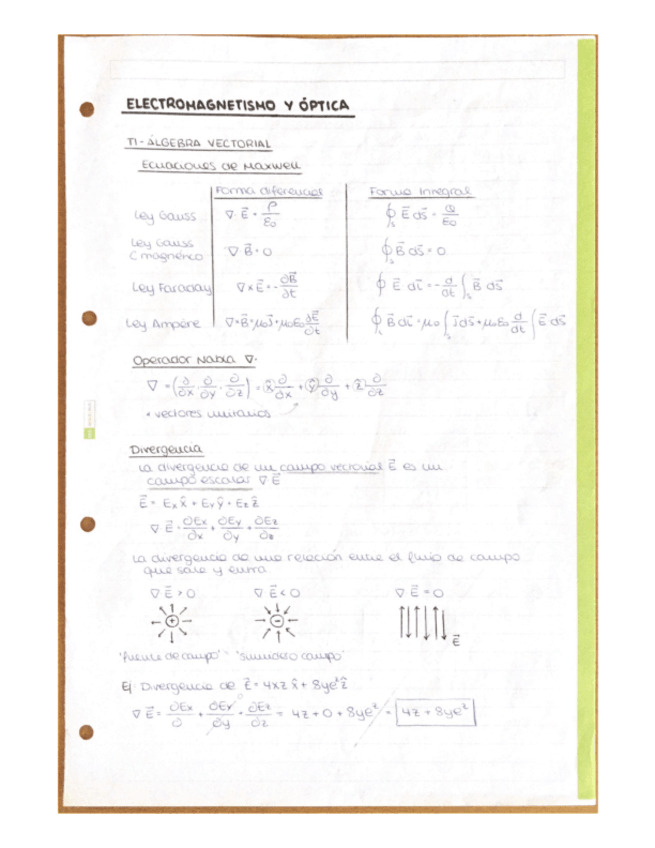 ELECTROMAGNETISMO Y ÓPTICA
T1- ÁLGEBRA VECTORIAL
Ecuaciones de Maxwell
Forma diferencial Forma Integral
Ley Gauss ∇·E⃗ = ρ/ε₀ ∮ₛ E⃗ ds⃗ = Q/ε₀
Ley Gauss
C magnético ∇ B⃗ = 0 ∮ₛ B⃗ ds⃗ = 0
Ley Faraday ∇×E⃗ = -∂B⃗/∂t ∮ E⃗ dl⃗ = -d/dt ∫ₛ B⃗ ds⃗
Ley Ampère ∇×B⃗ = μ₀J⃗ + μ₀ε₀ ∂E⃗/∂t ∮ B⃗ dl⃗ = μ₀ ∫ₛ J⃗ ds⃗ + μ₀ε₀ d/dt ∫ E⃗ ds⃗
Operador Nabla ∇·
∇ = (∂/∂x, ∂/∂y, ∂/∂z) = x̂ ∂/∂x + ŷ ∂/∂y + ẑ ∂/∂z
vectores unitarios
Divergencia
La divergencia de un campo vectorial E⃗ es un
campo escalar ∇ E⃗
E⃗ = Ex x̂ + Ey ŷ + Ez ẑ
∇ E⃗ = ∂Ex/∂x + ∂Ey/∂y + ∂Ez/∂z
La divergencia da una relación entre el flujo de campo
que sale y entra.
∇ E⃗ > 0 ∇ E⃗ < 0 ∇ E⃗ = 0
+ - E⃗
"fuente de campo" "sumidero campo"
Ej: Divergencia de E⃗ = 4xz x̂ + 8ye^z ẑ
∇ E⃗ = ∂Ex/∂ + ∂Ey/∂y + ∂Ez/∂z = 4z + 0 + 8ye^z = 4z + 8ye^z